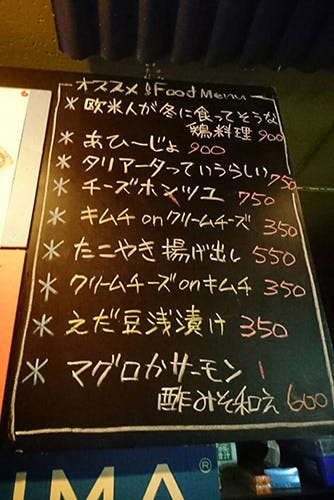 オススメ♪Food Menu
* 欧米人が冬に食ってそうな
鶏料理 900
* あひーじょ 900
* タリアータっていうらしい 750
* チーズホンヅユ 750
* キムチonクリームチーズ 350
* たこやき揚げ出し 550
* クリームチーズonキムチ 350
* えだ豆浅漬け 350
* マグロかサーモン
酢みそ和え 600
IMA®